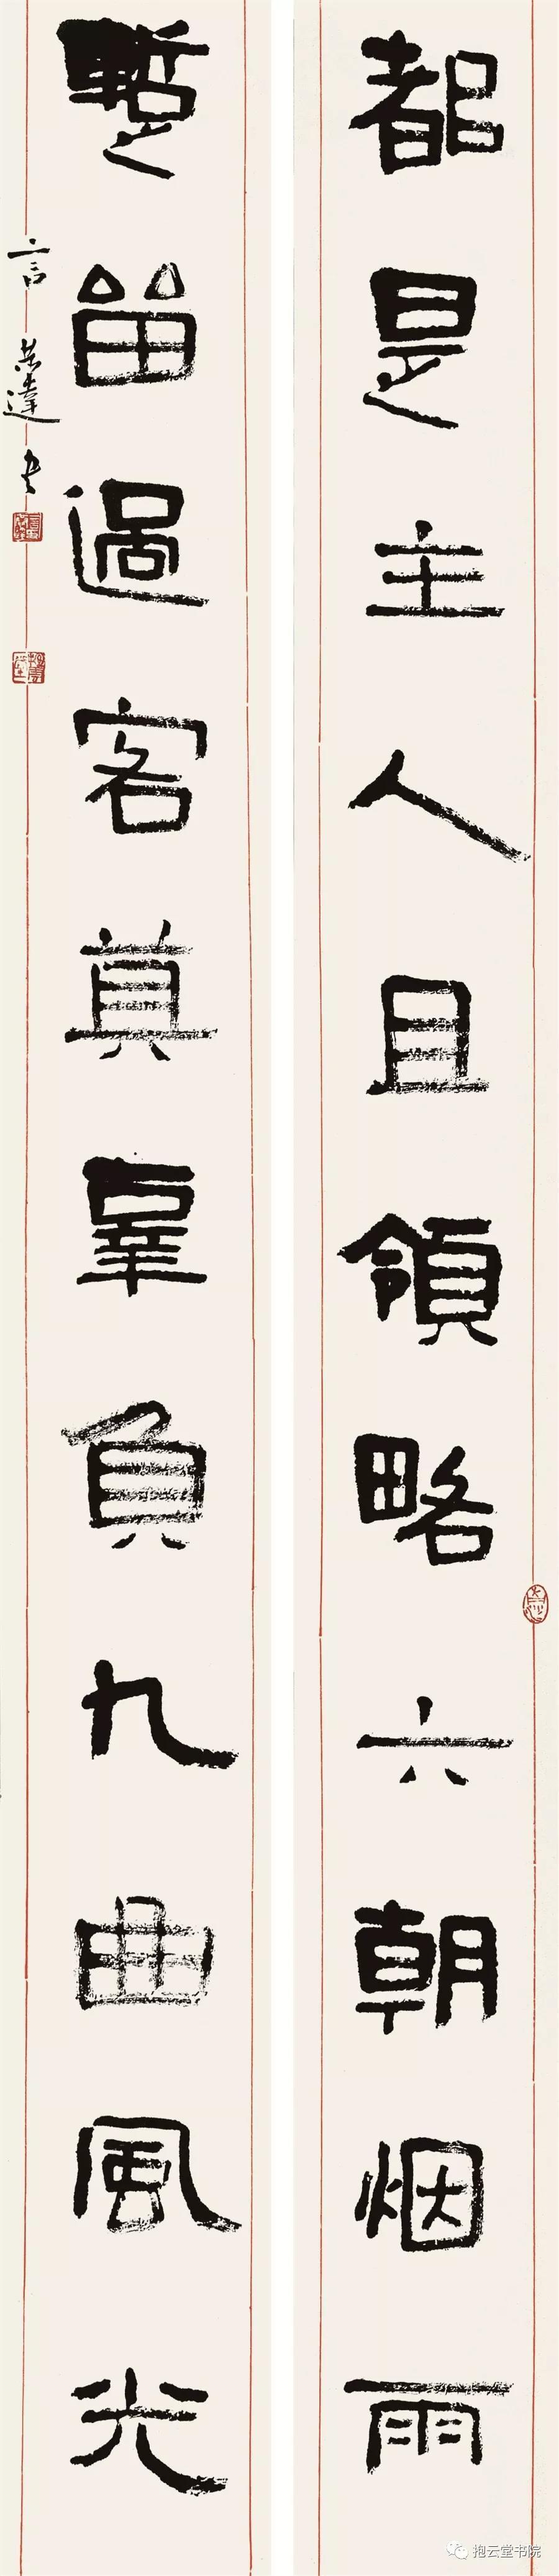 都是主人且領略六朝烟雨
暫留過客莫辜負九曲風光
言恭達書
抱云堂书院